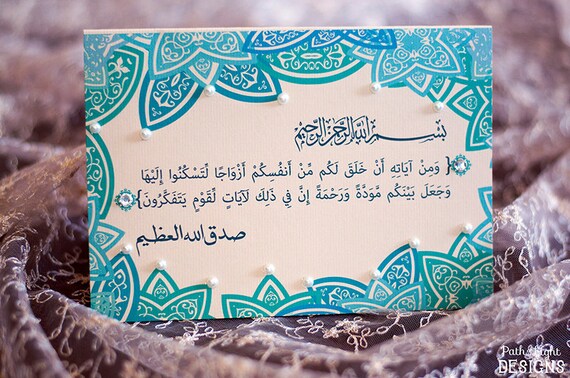 بسم الله الرحمن الرحيم
{ وَمِنْ آيَاتِهِ أَنْ خَلَقَ لَكُم مِّنْ أَنفُسِكُمْ أَزْوَاجًا لِّتَسْكُنُوا إِلَيْهَا
وَجَعَلَ بَيْنَكُم مَّوَدَّةً وَرَحْمَةً إِنَّ فِي ذَلِكَ لَآيَاتٍ لِّقَوْمٍ يَتَفَكَّرُونَ}
صدق الله العظيم
DESIGNS